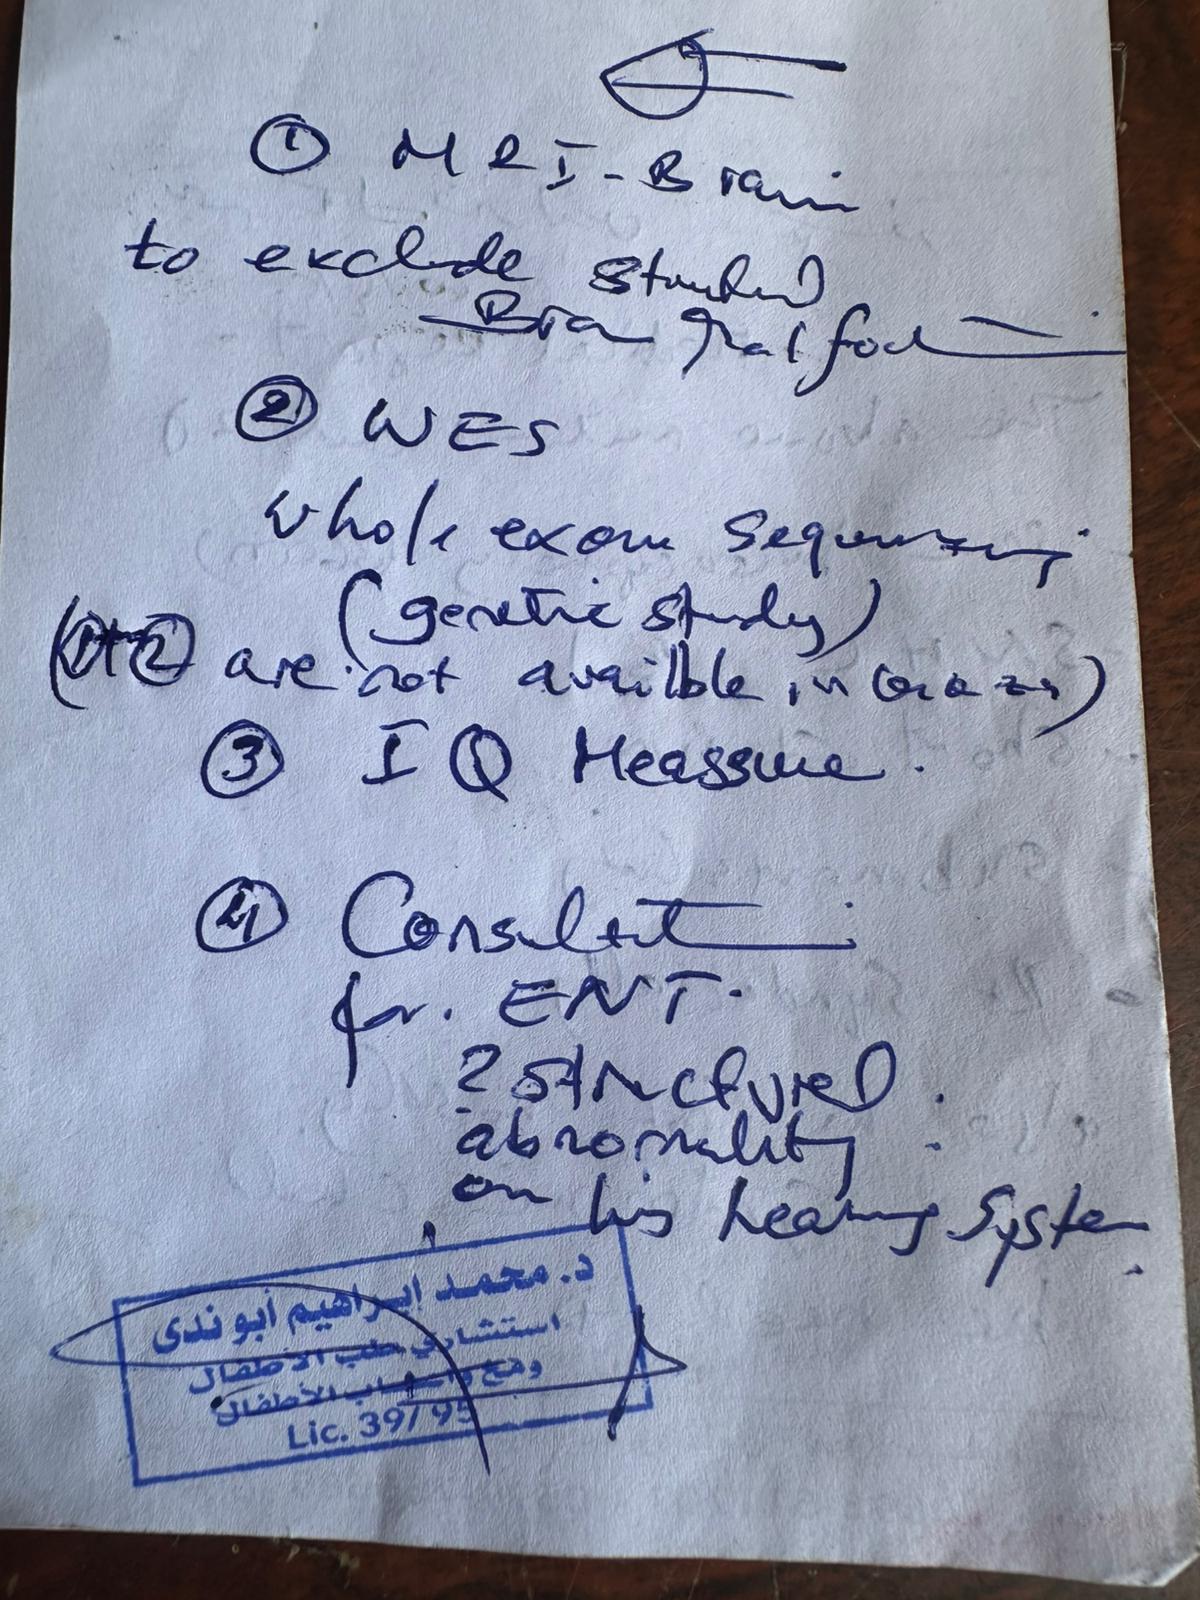 ① MRI-Brain
to exclude
Brain
② WES
whole exom sequenzing
(genetic study)
(①+② are not availble in Gaza)
③ IQ Meassure.
④ Consultation
for. ENT.
? structural
abnormality
on his hearing System.
د. محمد إبراهيم أبو ندى
استشاري طب الأطفال
ومخ وأعصاب الأطفال
Lic. 39/95